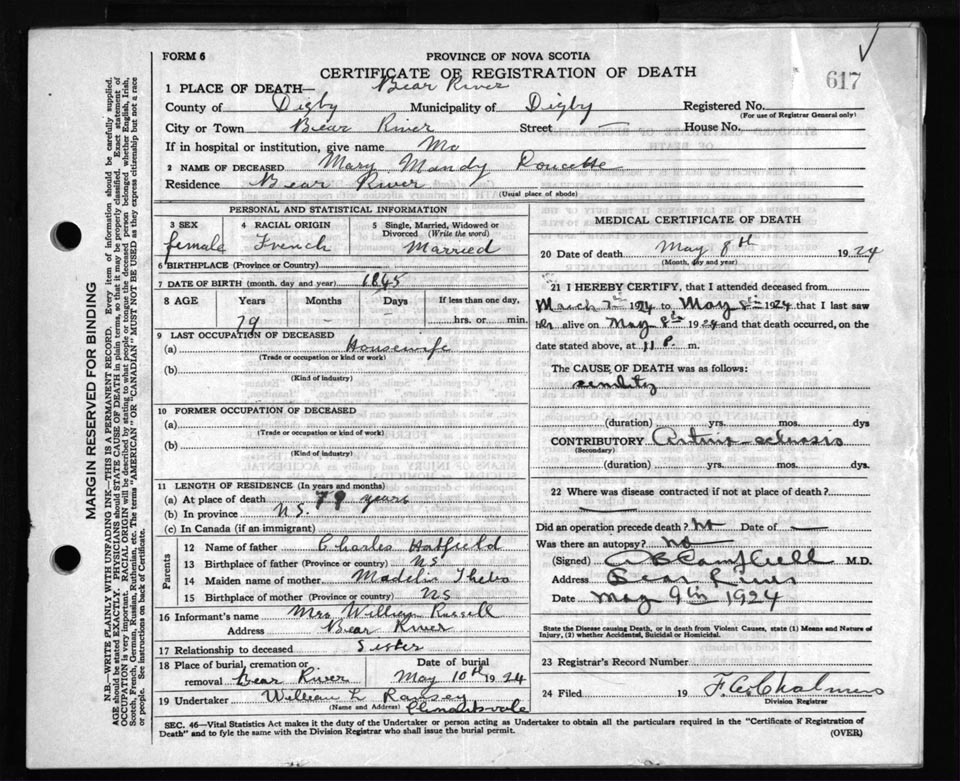 FORM 6
PROVINCE OF NOVA SCOTIA
617
CERTIFICATE OF REGISTRATION OF DEATH
1 PLACE OF DEATH— Bear River
County of Digby Municipality of Digby Registered No.
(For use of Registrar General only)
City or Town Bear River Street — House No.
If in hospital or institution, give name
2 NAME OF DECEASED Mary Mandy Doucette
Residence Bear River
(Usual place of abode)
PERSONAL AND STATISTICAL INFORMATION
3 SEX female
4 RACIAL ORIGIN French
5 Single, Married, Widowed or Divorced (Write the word) Married
6 BIRTHPLACE (Province or Country)
7 DATE OF BIRTH (month, day and year) 1845
8 AGE Years Months Days If less than one day,
79 – – hrs. or min.
9 LAST OCCUPATION OF DECEASED
(a) Housewife
(Trade or occupation or kind or work)
(b)
(Kind of industry)
10 FORMER OCCUPATION OF DECEASED
(a)
(Trade or occupation or kind of work)
(b)
(Kind of industry)
11 LENGTH OF RESIDENCE (In years and months)
(a) At place of death 79 years
(b) In province N.S.
(c) In Canada (if an immigrant)
Parents
12 Name of father Charles Hatfield
13 Birthplace of father (Province or country) NS
14 Maiden name of mother
15 Birthplace of mother (Province or country) NS
16 Informant's name Mrs William Russell
Address Bear River
17 Relationship to deceased Sister
18 Place of burial, cremation or removal Bear River
Date of burial May 10th 1924
19 Undertaker William L Ramsey
(Name and Address) Clementsvale
MEDICAL CERTIFICATE OF DEATH
20 Date of death May 8th 1924
(Month, day and year)
21 I HEREBY CERTIFY, that I attended deceased from
March 7th 1924 to May 8th 1924 that I last saw
her alive on May 8th 1924 and that death occurred, on the
date stated above, at 11 P. m.
The CAUSE OF DEATH was as follows:
senility
(duration) yrs. mos. dys
CONTRIBUTORY Arterio-sclerosis
(Secondary)
(duration) yrs. mos. dys.
22 Where was disease contracted if not at place of death?
—
Did an operation precede death? No Date of —
Was there an autopsy? no
(Signed) Campbell M.D.
Address Bear River
Date May 9th 1924
State the Disease causing Death, or in death from Violent Causes, state (1) Means and Nature of
Injury, (2) whether Accidental, Suicidal or Homicidal.
23 Registrar's Record Number
24 Filed 19 Chalmers
Division Registrar
SEC. 46—Vital Statistics Act makes it the duty of the Undertaker or person acting as Undertaker to obtain all the particulars required in the "Certificate of Registration of
Death" and to fyle the same with the Division Registrar who shall issue the burial permit.
(OVER)
MARGIN RESERVED FOR BINDING
N.B.—WRITE PLAINLY WITH UNFADING INK—THIS IS A PERMANENT RECORD. Every item of information should be carefully supplied.
AGE should be stated EXACTLY. PHYSICIANS should STATE CAUSE OF DEATH in plain terms, so that it may be properly classified. Exact statement of
OCCUPATION is very important. RACIAL ORIGIN will be described by stating to what people or tongue the deceased person belonged whether English, Irish,
Scotch, French, German, Russian, Ruthenian, etc. The terms "AMERICAN" OR "CANADIAN" MUST NOT BE USED as they express citizenship but not a race
or people. See instructions on back of Certificate.